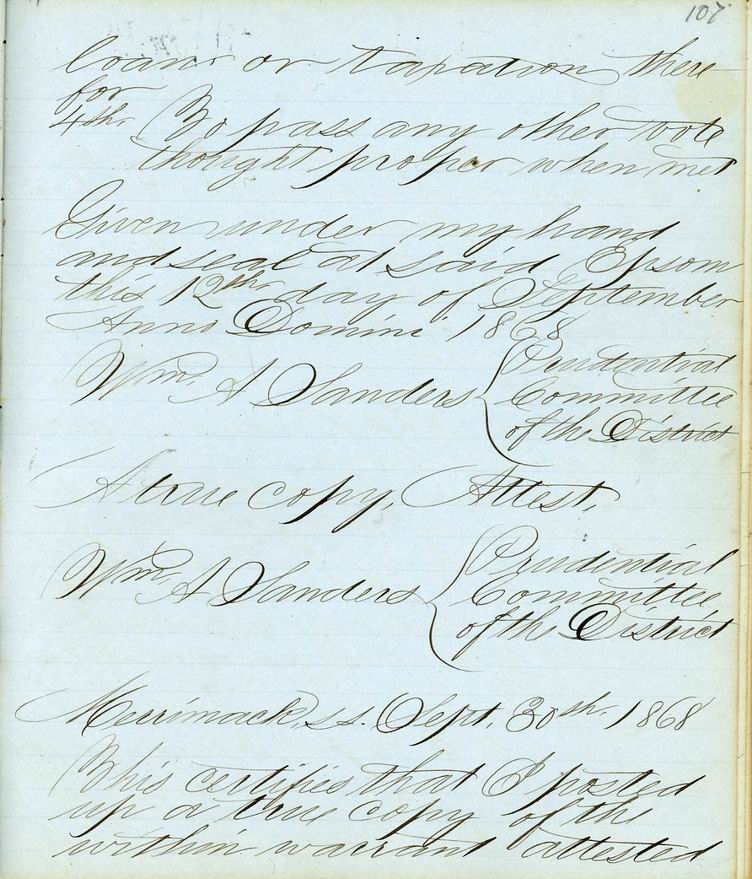 107
loan or taxation there
for
4th To pass any other vote
thought proper when met
Given under my hand
and seal at said Epsom
this 12th day of September
Anno Domini 1868
Wm. A Sanders { Prudential
Committee
of the District
A true copy, Attest,
Wm. A Sanders { Prudential
Committee
of the District
Merrimack, ss. Sept. 30th. 1868
This certifies that I posted
up a true copy of the
within warrant attested